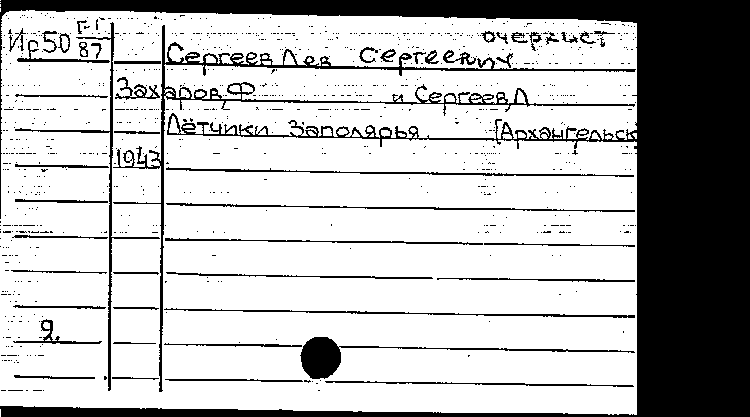 очеркист
Ир50 ГГ/87 Сергеев, Лев Сергеевич
Захаров, Ф. и Сергеев, Л
Лётчики Заполярья. [Архангельск
1943
9.